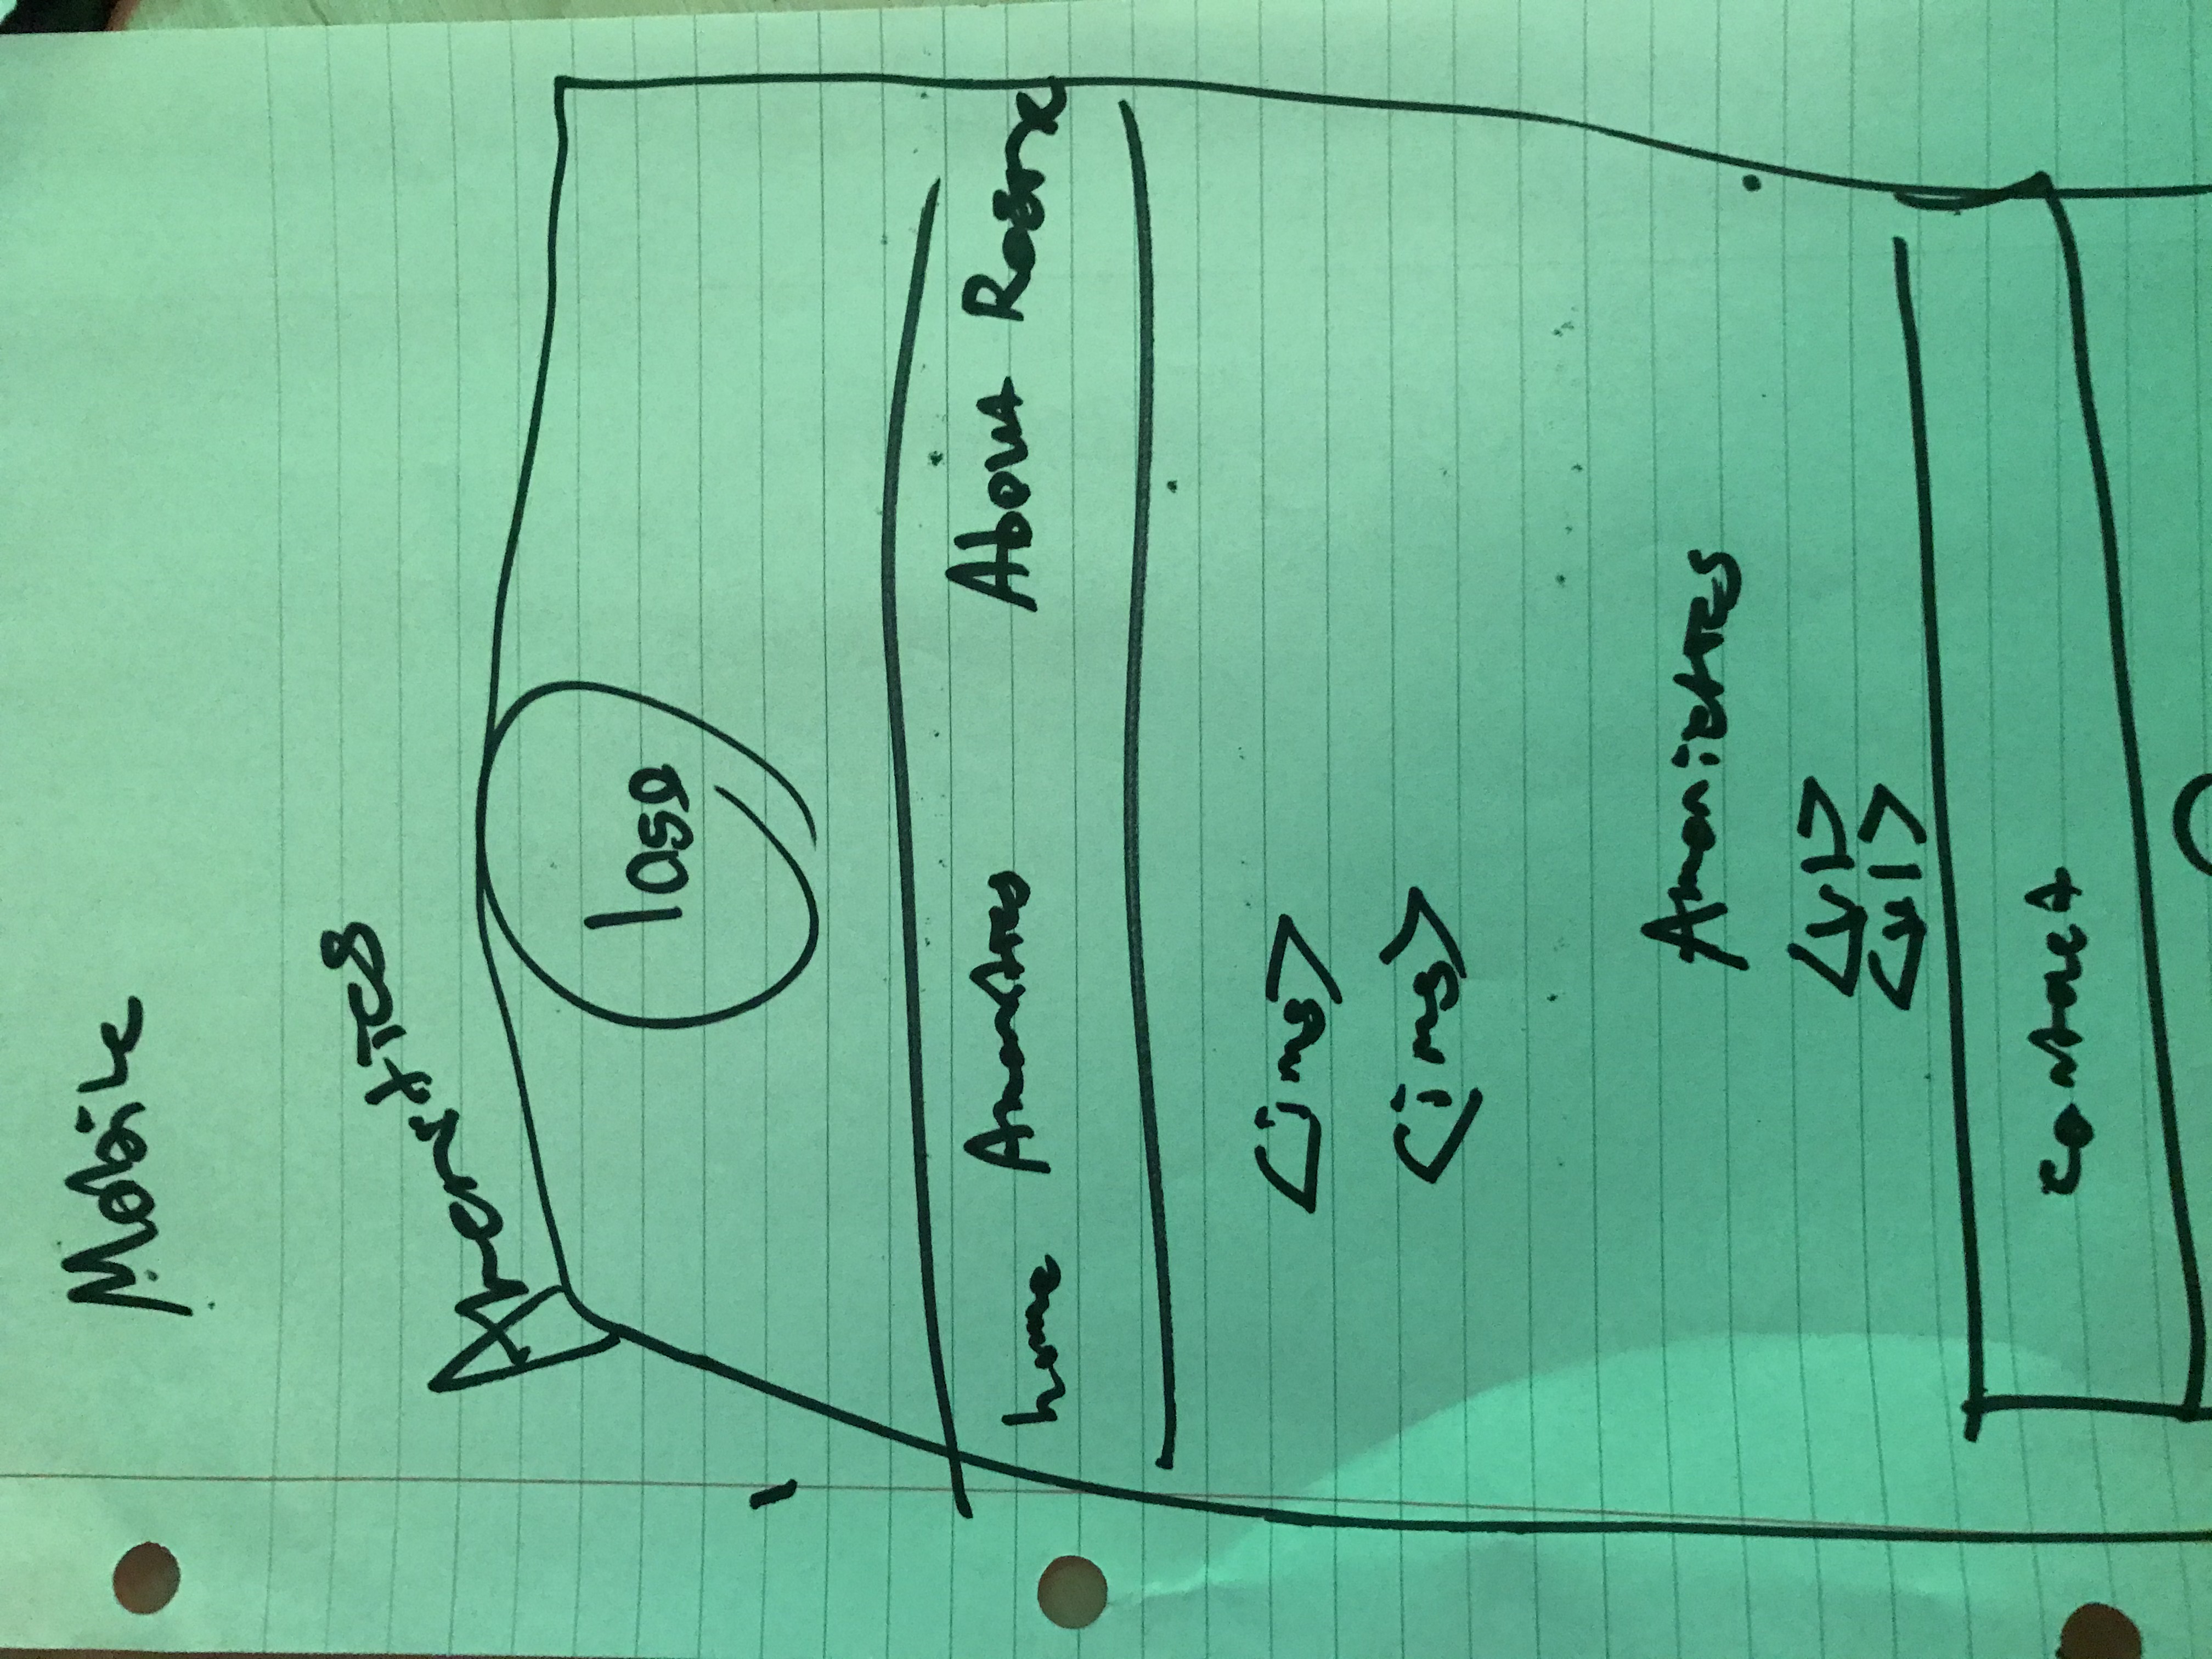 Mobile
Amenities
logo
home Amenities About Rooms
<img>
<img>
Amenieties
<ul>
<ul>
contact